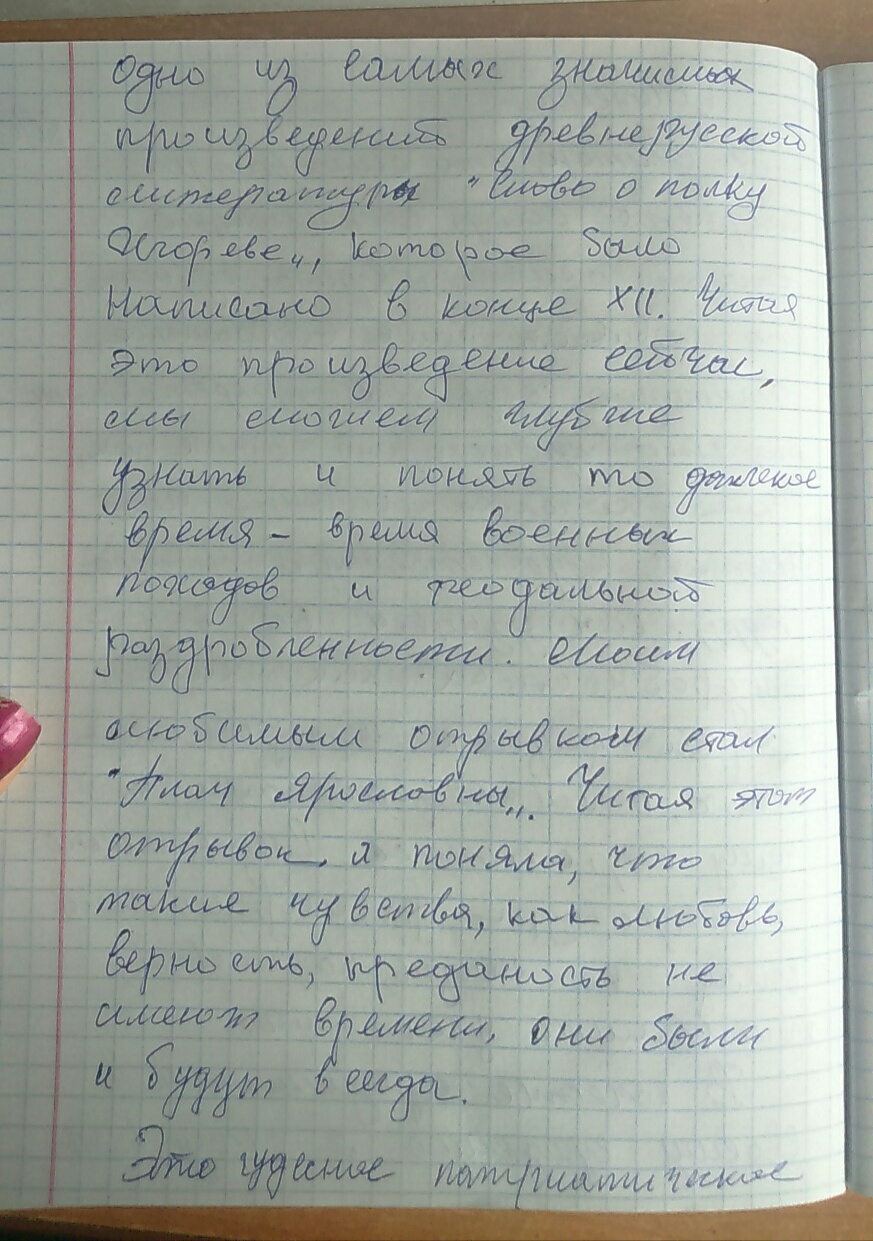 Одно из самых значимых
произведений древнерусской
литературы "Слово о полку
Игореве", которое было
написано в конце XII. Читая
это произведение сейчас,
мы сможем глубже
узнать и понять то далекое
время - время военных
походов и феодальной
раздробленности. Моим
любимым отрывком стал
"Плач Ярославны". Читая этот
отрывок, я поняла, что
такие чувства, как любовь,
верность, преданость не
имеют времени, они были
и будут всегда.
Это чудесное патриатическое